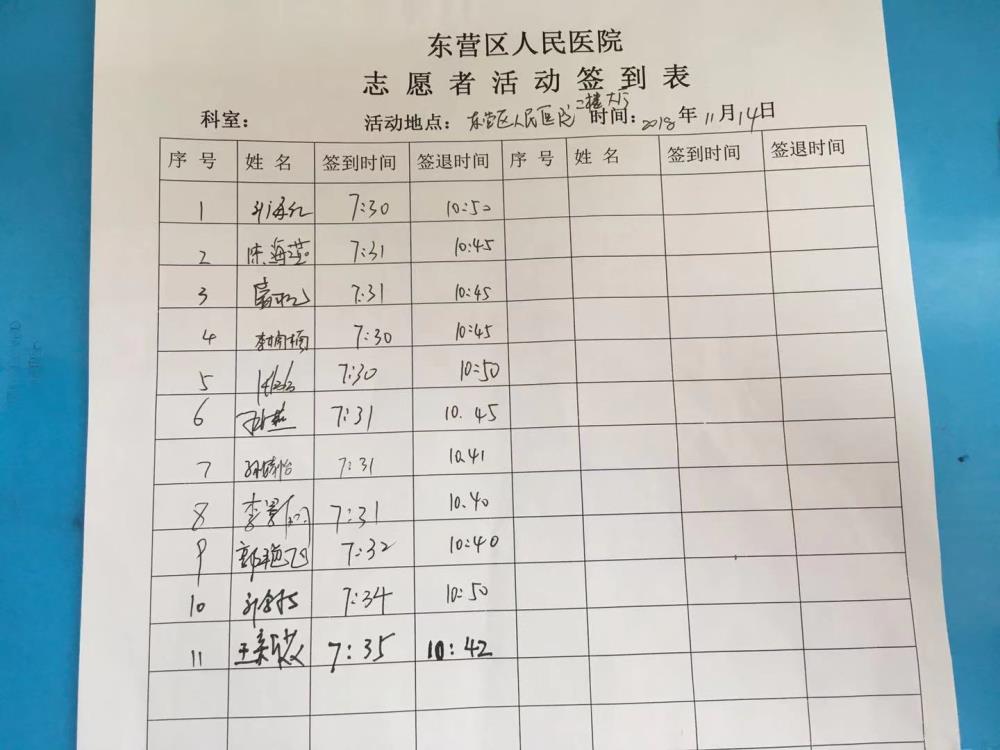 东营区人民医院
志愿者活动签到表
科室： 活动地点：东营区人民医院二楼大厅 时间：2018年11月14日
序号 姓名 签到时间 签退时间 序号 姓名 签到时间 签退时间
1 7:30 10:50
2 陈海燕 7:31 10:45
3 7:31 10:45
4 李楠楠 7:30 10:45
5 7:30 10:50
6 7:31 10.45
7 7:31 10.41
8 7:31 10.40
9 7:32 10:40
10 7:34 10:50
11 7:35 10:42